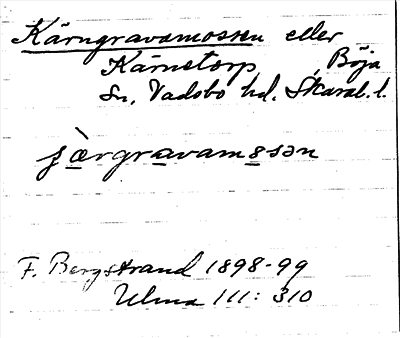 Kärngravamossen eller
Kärnetorp, Böja
Sn, Vadsbo hd. Skarab. l.
Färgravamossen
F. Bergstrand 1898-99
Ulma 111: 310